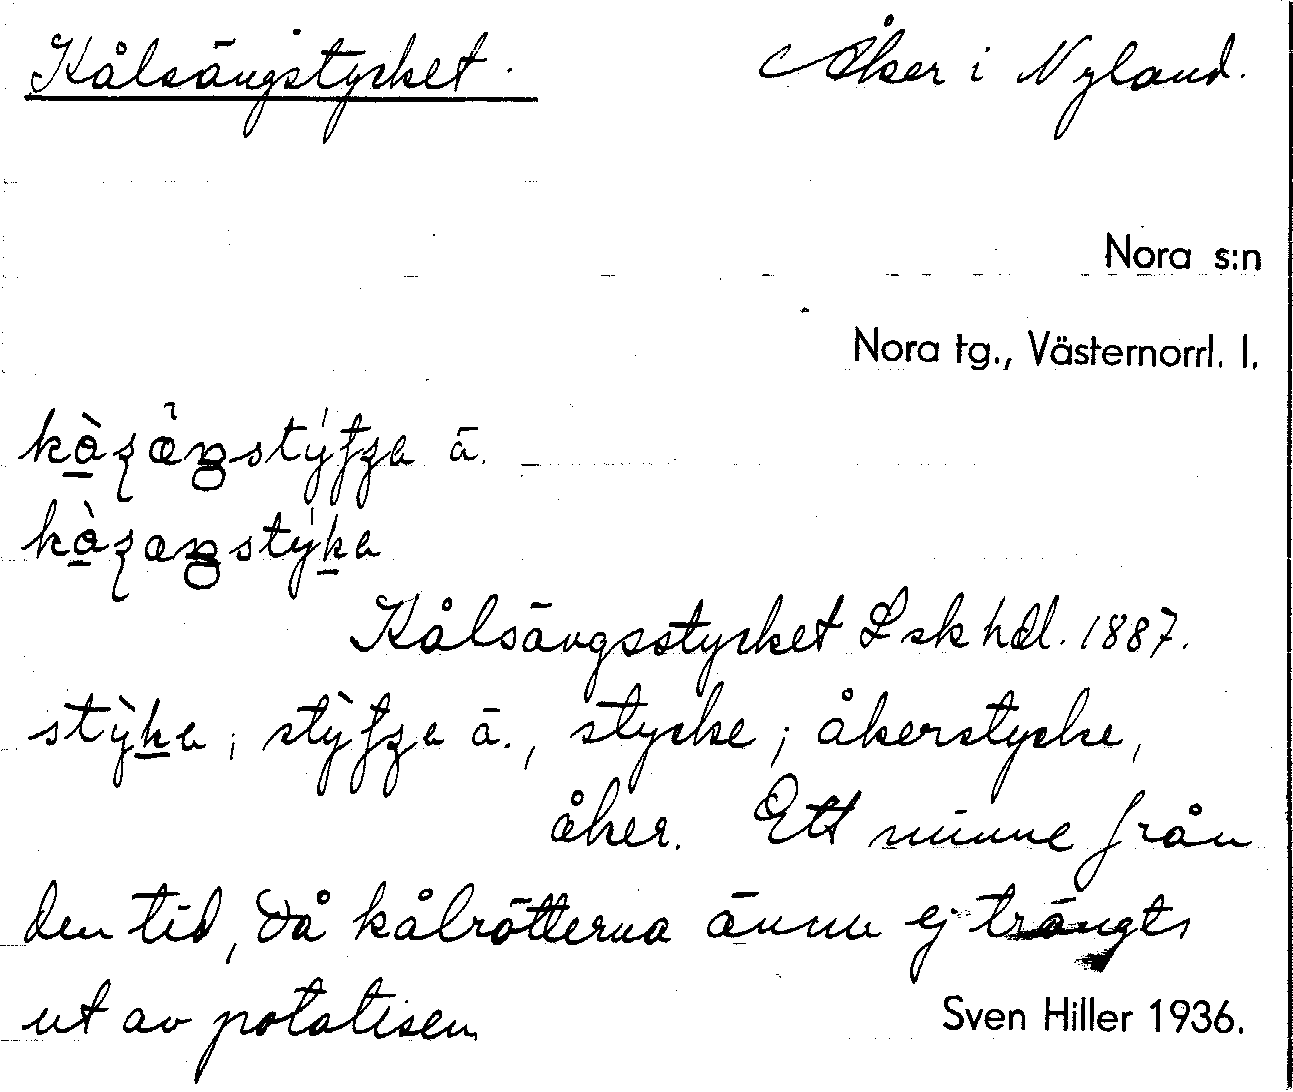 Kålsängstycket. Åker i Nyland.
Nora s:n
Nora tg., Västernorrl. l.
ä.
Kålsängsstycket L sk hdl. 1887.
ä., stycke; åkerstycke,
åker. Ett minne från
den tid, då kålrötterna ännu ej trängts
ut av potatisen
Sven Hiller 1936.